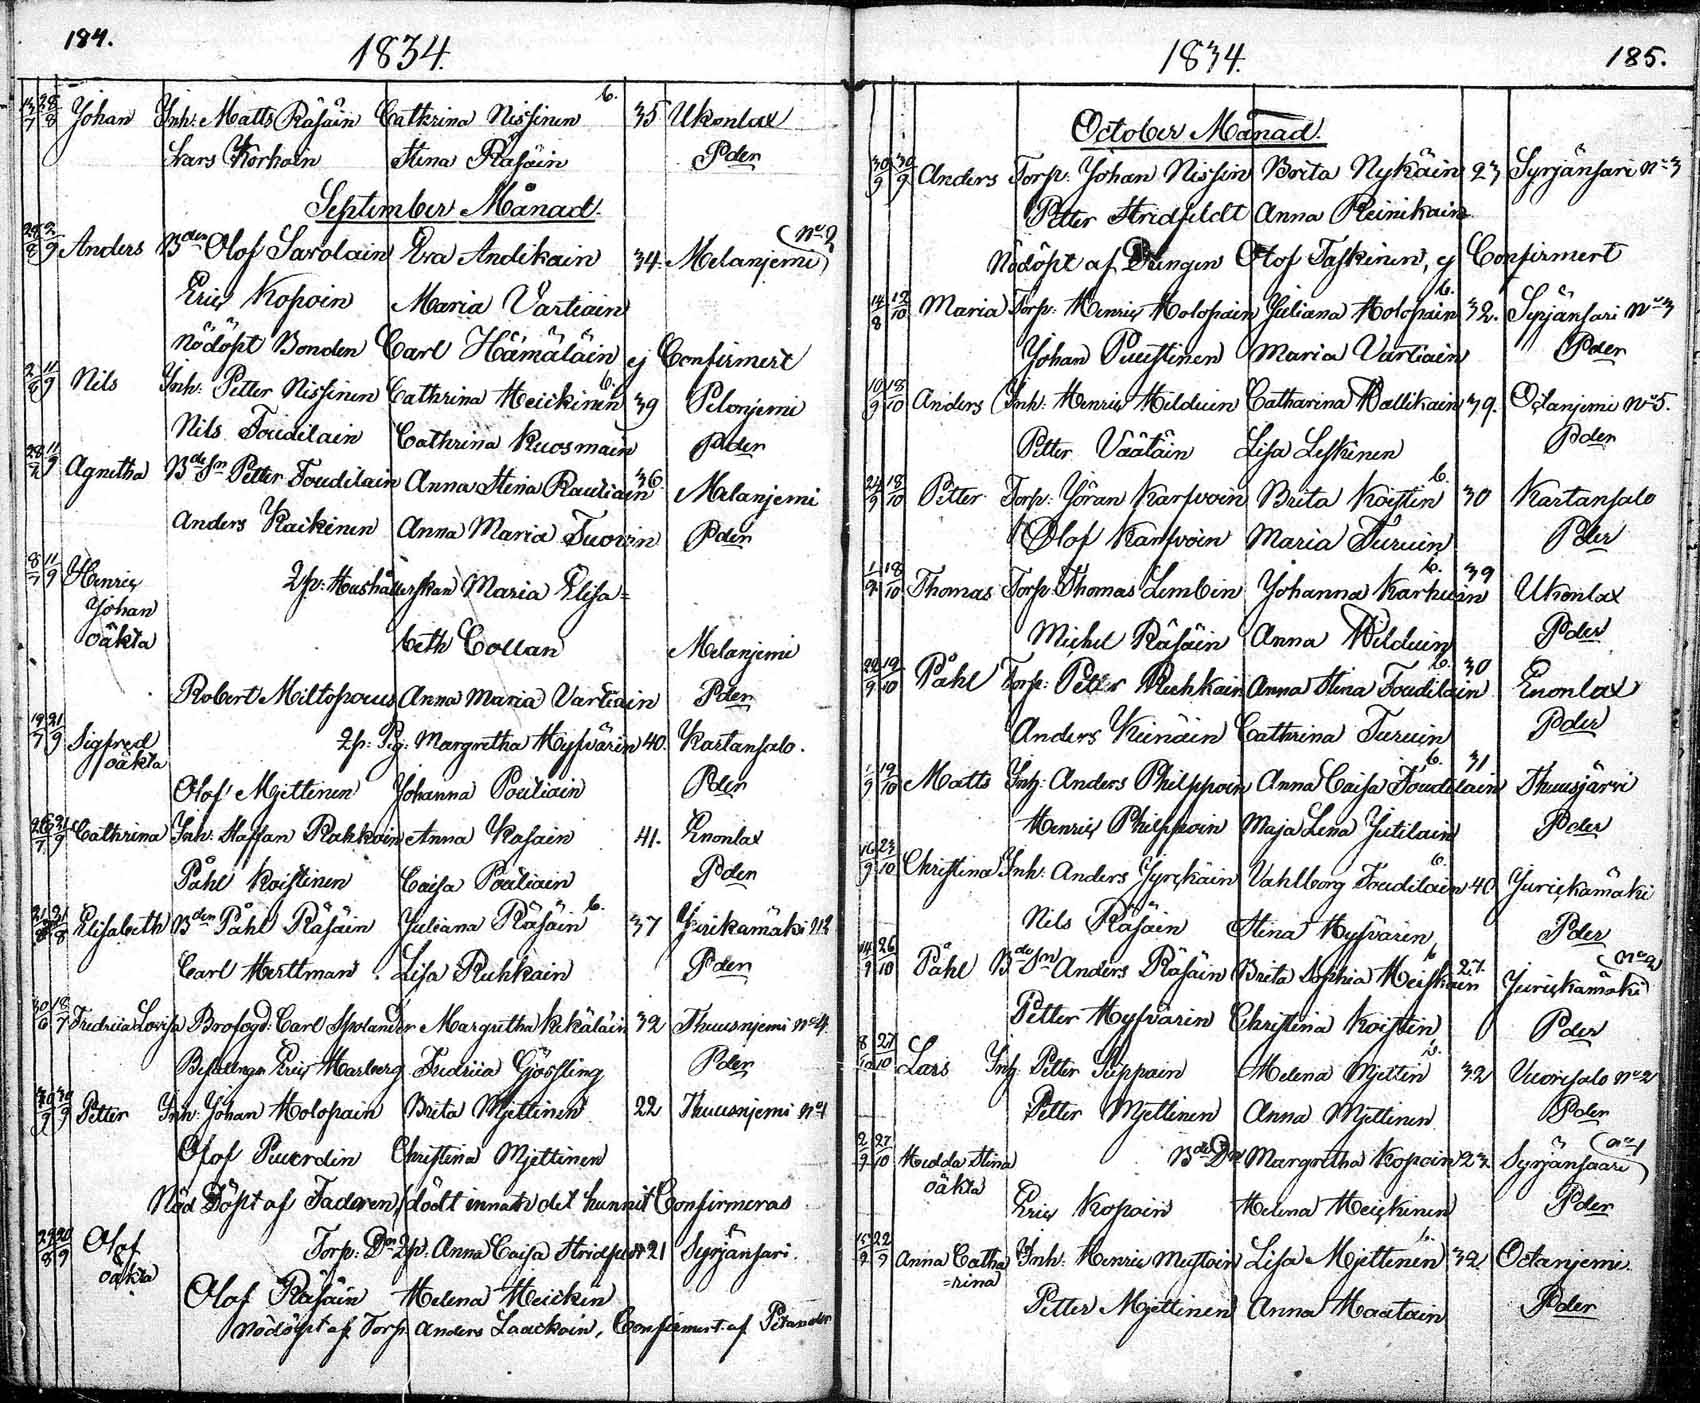 184.
1834.
13/7 28/8 Johan Inh: Matts Räsäin Cathrina Nissinen b. 35 Ukonlax
Lars Korhoin Stina Räsäin Pder
September Månad.
28/8 2/9 Anders Bden Olof Savolain Eva Andikain 34. Melanjemi No 2
Eric Kopoin Maria Vartiain
nödöpt Bonden Carl Hämäläin ej Confirmert
2/8 11/9 Nils Inh: Petter Nissinen Cathrina Heickinen b. 39 Pelonjemi
Nils Toudilain Cathrina Kuosmain Pder
28/7 11/9 Agnetha Bde Sn Petter Toudilain Anna Stina Rautiain 36. Melanjemi
Anders Kaikinen Anna Maria Tuovin Pder
8/7 11/9 Henric 2p: Hushållerskan Maria Elisa=
Johan
oäkta beth Collan Melanjemi
Robert Miltopaus Anna Maria Vartiain Pder
19/7 21/9 Sigfred 2p: Pig: Margretha Hyfvärin 40. Kartansalo.
oäkta
Olof Mjettinen Johanna Poutiain Pder
26/7 21/9 Cathrina Inh: Staffan Rahkoin Anna Kasain 41. Enonlax
Påhl Koistinen Caisa Poutiain Pder
21/8 21/8 Elisabeth Bden Påhl Räsäin Juliana Räsäin b. 37 Jirikamäki N 2
Carl Herttman Lisa Ruhkain Pder
30/6 18/7 Fredrica Lovisa Brofogd: Carl Sjolander Margretha Kekäläin 32 Thuusnjemi No 4.
Befallngn Eric Harberg Fredrica Gössling Pder
30/9 30/9 Petter Inh: Johan Holopain Brita Mjettinen 22 Thuusnjemi No 1
Olof Puurdin Christina Mjettinen
Nöd Döpt af Faderen, dödt innan det hunnit Confirmeras
29/8 20/9 Olof Torp: Dn 2p. Anna Caisa Stridfeldt 21 Syrjänsari.
oäkta
Olof Räsäin Helena Heickin
Nödöpt af Torp. Anders Laackoin, Confirmert af Petander
1834.
185.
October Månad.
30/9 30/9 Anders Torp: Johan Nissin Brita Nykäin 23 Syrjänsari No 3
Petter Stridfeldt Anna Reinikain
Nödöpt af Drängen Olof Taskinen, ej Confirmert
14/8 12/10 Maria Torp: Henric Holopain Juliana Holopain b. 32. Syrjänsari No 3
Johan Puustinen Maria Vartiain Pder
10/9 18/10 Anders Inh: Henric Hilduin Catharina Hallikain 39. Octanjemi No 5.
Petter Väätäin Lisa Leskinen Pder
24/9 18/10 Petter Torp: Jöran Karfvoin Brita Koistin b. 30 Kartansalo
Olof Karfvoin Maria Turuin Pder
1/9 18/10 Thomas Torp: Thomas Lembin Johanna Karhuin b. 39 Ukonlax
Michel Räsäin Anna Hilduin Pder
22/9 19/10 Påhl Torp: Petter Ruhkain Anna Stina Toudilain b. 30 Enonlax
Anders Keinäin Cathrina Turuin Pder
1/9 19/10 Matts Inh: Anders Philppoin Anna Caisa Toudilain b. 31 Thuusjärvi
Henric Philppoin Maja Lena Jutilain Pder
16/9 23/10 Christina Inh: Anders Jyrckäin Vahlborg Toudilain b. 40. Jurickämäki
Nils Räsäin Stina Hyfvärin Pder
14/9 26/10 Påhl Bde Sn Anders Räsäin Brita Sophia Heiskain b 27. Jurickämäki No 2
Petter Hyfvärin Christina Koistin Pder
8/10 27/10 Lars Inh: Petter Puppain Helena Mjettin b. 32 Vuorisalo No 2
Petter Mjettinen Anna Mjettinen Pder
2/9 27/10 Hedda Stina Bde Dr Margretha Kopoin 23. Syrjänsaari No 1
oäkta
Eric Kopoin Helena Heickinen Pder
15/9 22/9 Anna Catha Inh: Henric Mustoin Lisa Mjettinen b 32. Octanjemi.
=rina
Petter Mjettinen Anna Haatain Pder